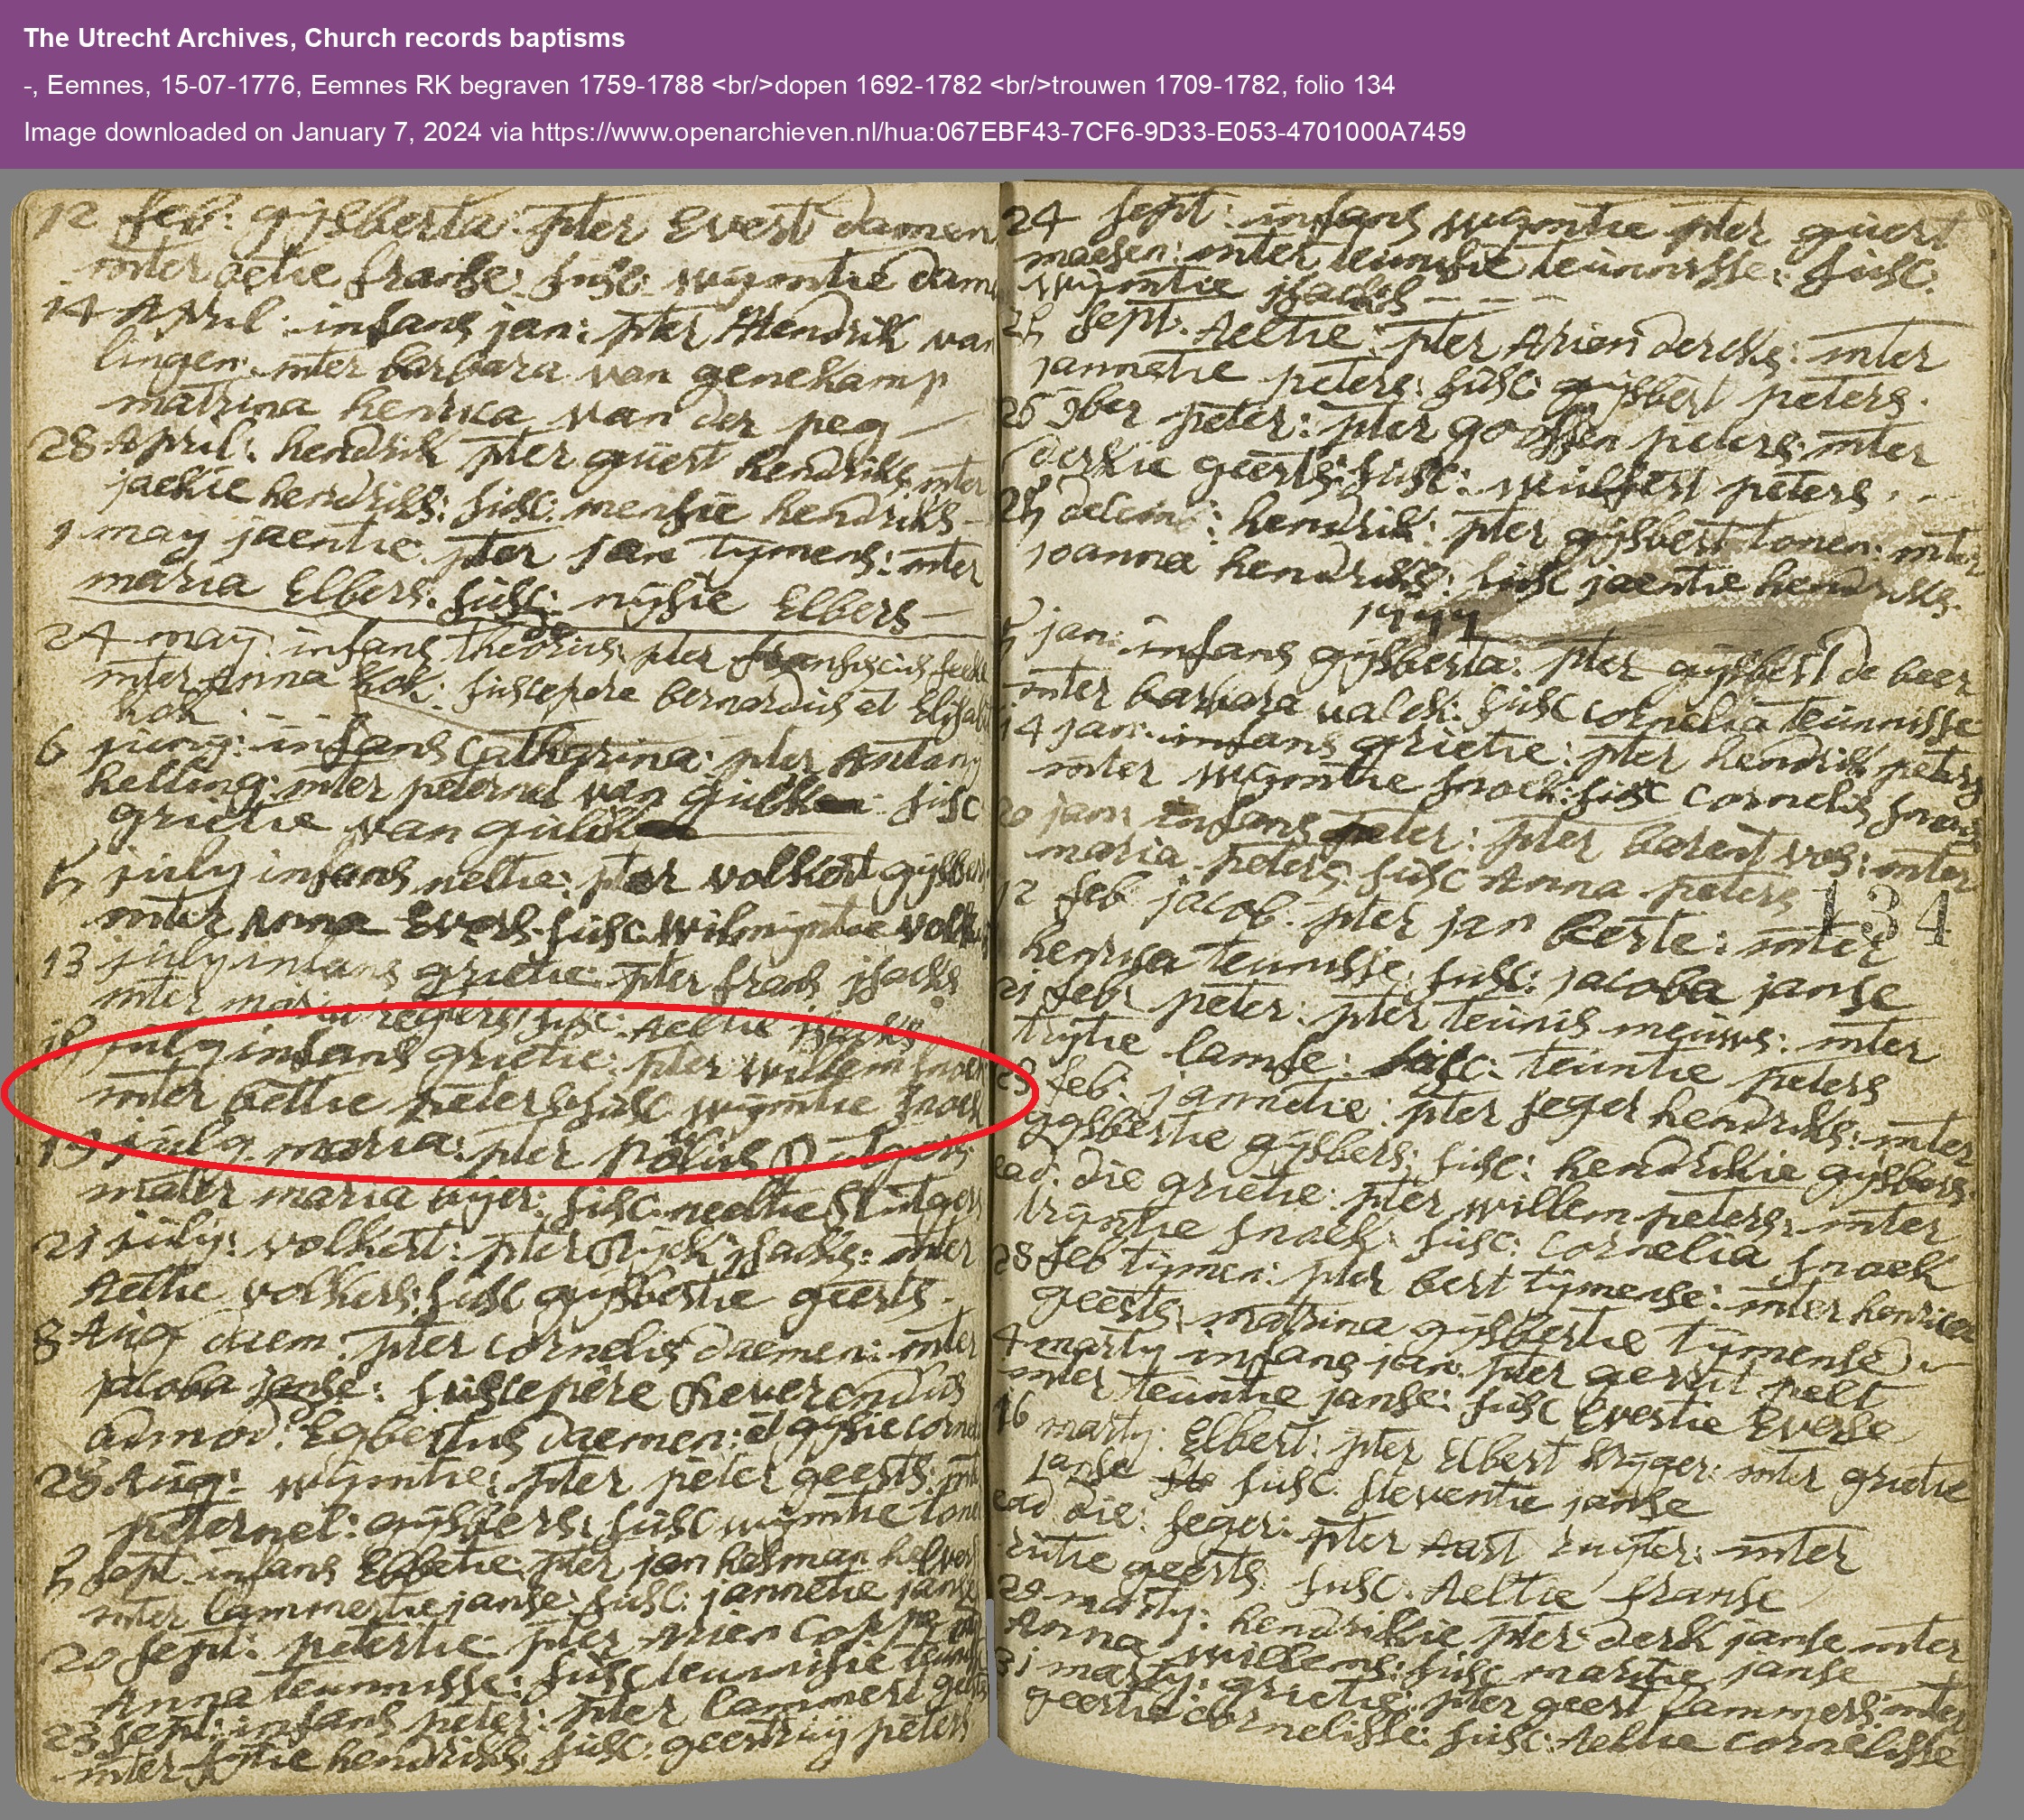 The Utrecht Archives, Church records baptisms
-, Eemnes, 15-07-1776, Eemnes RK begraven 1759-1788 <br/>dopen 1692-1782 <br/>trouwen 1709-1782, folio 134
Image downloaded on January 7, 2024 via https://www.openarchieven.nl/hua:067EBF43-7CF6-9D33-E053-4701000A7459
12 feb: gijsberta: pter Evert damen
mter aetie franse: susc: wijmtie dam
14 April: infans jan: pter Hendrik van
lingen: mter barbara van genekamp
matrina henrica van der peg
28 April: hendrik pter guert hendriks mter
jackie hendriks: susc: mensie hendriks
9 may jaentie: pter jan tijmens: mter
maria Elbers: susc: nijsie Elbers
24 may: infans theodorus: pter franssiscus
mter Anna kok: suscepere bernardus et Elisab
kok
6 juny: infans Catharina: pter Antony
helling: mter peternel van gulik susc
grietie van gulik
july infans neltie: pter volkert gijsber
mter Anna Evers: susc: wilmijntie volk
13 july infans grietie: pter frans jsacks
mter maria regters susc: Aeltie
15 july infans grietie: pter willem snoek
mter bettie peters susc wijmtie snoek
19 july maria: pter paulus
mater maria bijer: susc: neeltie Slutgers
21 july: volkert: pter Rijck jsacks: mter
Aeltie volkers: susc gijsbertie geerts
8 Aug daem: pter cornelis daemen: mter
jacoba janse: suscepere Reverendus
admod: Egbertus daemen: et gijsie corne
28 Aug: wijmtie: pter peter geerts: mt
peternel: gijsbers: susc wijmtie tone
sept infans Ebbetie: pter jan helman
mter lammertie janse: susc: jannetie janse
20 sept: petertie pter Arien
Anna teunnisse: susc teunisie teunis
23 sept: infans peter: pter lammert
mter fijtie hendriks: susc: geertruij peters
24 sept: infans wijmtie pter guert
maesen: mter teunisie teunnisse: susc:
wijmtie jsacks
sept: Aeltie: pter Arien dercks: mter
jannetie peters: susc gijsbert peters
26 9ber peter: pter goossen peters: mter
derkie geerts: susc: wulfert peters
decemb: hendrik: pter gijsbert tonen: mter
joanna hendriks: susc jaentie hendriks
1777
jan: infans gijsberta: pter gijsbert de beer
mter barbara valck: susc cornelia teunnisse
14 jan: infans grietie: pter hendrik peters
mter wijmtie snoek: susc cornelis snoek
20 jan: infans peter: pter barent vos: mter
maria peters: susc Anna peters
134
12 feb jacob: pter jan Eerte: mter
henrica teunisse: susc: jacoba janse
21 feb: peter: pter teunis meuws: mter
trijtie lamse: susc: teuntie peters
23 feb: jannetie: pter seger hendriks: mter
gijsbertie gijsbers: susc: hendrikie gijsbers
ead: die grietie: pter willem peters: mter
trijntie snoek: susc: cornelia snoek
28 feb tijmen: pter bert tijmense: mter henrica
geerts: matrina gijsbertie tijmense
4 marty infans jan: pter gerrit pelt
mter teuntie janse: susc Evertie Everse
16 marty: Elbert: pter Elbert krijger: mter grietie
janse susc: steventie janse
ead die: seger: pter Aart ruijter: mter
rutie geerts: susc: Aeltie franse
29 marty: hendrikie pter derk janse mter
Anna willems: susc maritie janse
31 marty: grietie: pter geert lammers: mter
geertie cornelisse: susc: Aeltie cornelisse